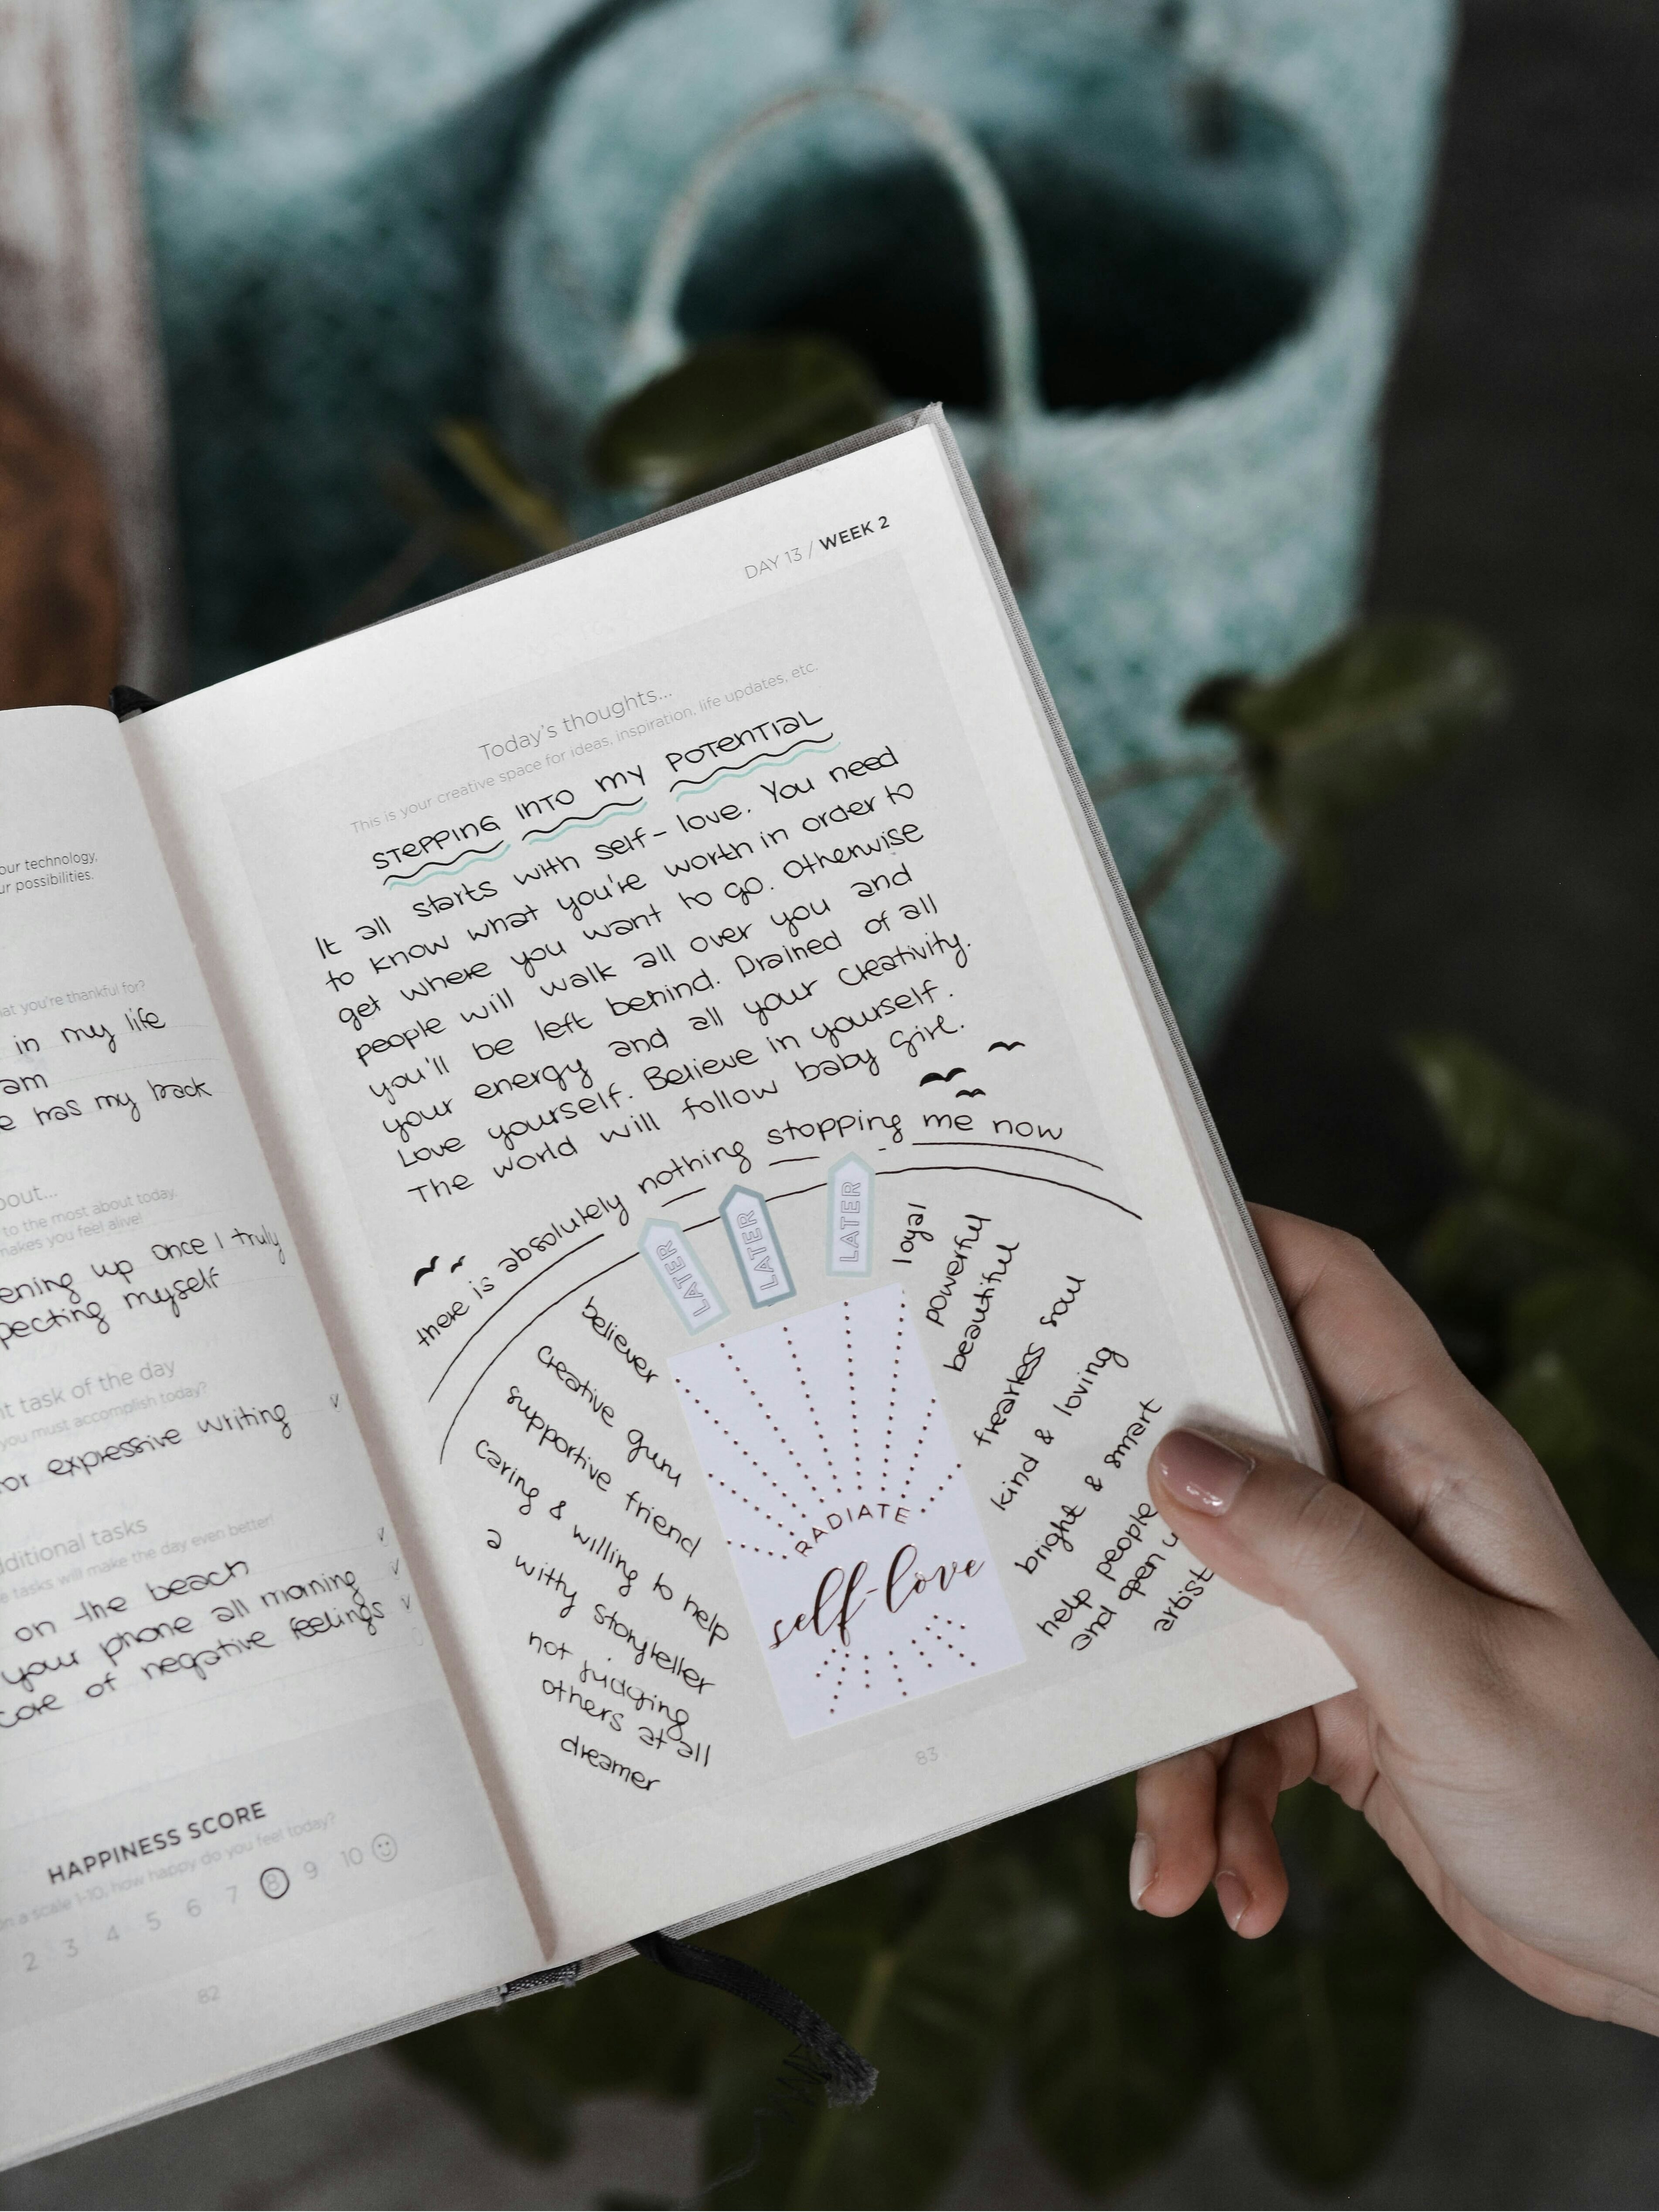 our technology,
ur possibilities.
at you're thankful for?
in my life
am
e has my back
bout...
to the most about today,
makes you feel alive!
ening up once I truly
pecting myself
nt task of the day
you must accomplish today?
or expressive writing
dditional tasks
e tasks will make the day even better!
on the beach
your phone all morning
core of negative feelings
HAPPINESS SCORE
on a scale 1-10, how happy do you feel today?
2 3 4 5 6 7 8 9 10
82
DAY 13 / WEEK 2
Today's thoughts...
This is your creative space for ideas, inspiration, life updates, etc.
STEPPING INTO MY POTENTIAL
It all starts with self-love. You need
to know what you're worth in order to
get where you want to go. Otherwise
people will walk all over you and
you'll be left behind. Drained of all
your energy and all your creativity.
Love yourself. Believe in yourself.
The world will follow baby girl.
there is absolutely nothing stopping me now
LATER
LATER
LATER
believer
creative guru
supportive friend
caring & willing to help
a witty storyteller
not judging
others at all
dreamer
RADIATE
self-love
loyal
powerful
beautiful
fearless soul
kind & loving
bright & smart
help people
and open u
artist
83